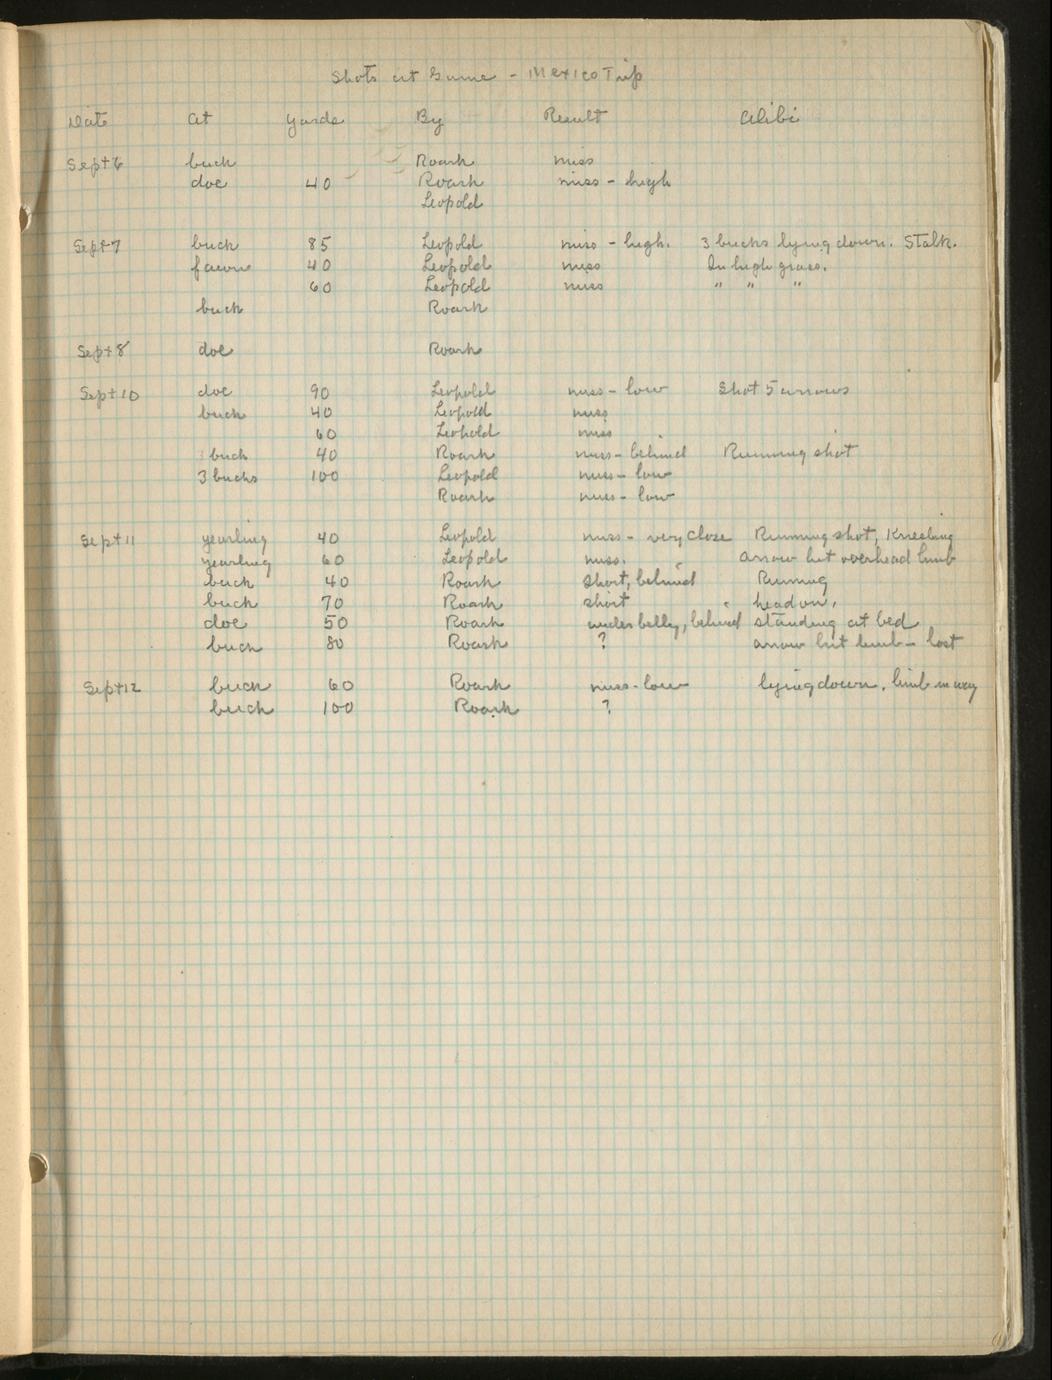 Shots at Game - Mexico Trip
Date At Yards By Result Alibi
Sept 6 buck Roark miss
doe 40 Roark miss - high
Leopold
Sept 7 buck 85 Leopold miss - high. 3 bucks lying down. Stalk.
fawn 40 Leopold miss In high grass.
60 Leopold miss " " "
buck Roark
Sept 8 doe Roark
Sept 10 doe 90 Leopold miss - low Shot 5 arrows
buck 40 Leopold miss
60 Leopold miss
buck 40 Roark miss - behind Running shot
3 bucks 100 Leopold miss - low
Roark miss - low
Sept 11 yearling 40 Leopold miss - very close Running shot, Kneeling
yearling 60 Leopold miss. arrow hit overhead limb
buck 40 Roark short, behind Running
buck 70 Roark short head on.
doe 50 Roark under belly, behind standing at bed
buck 80 Roark ? arrow hit limb - lost
Sept 12 buck 60 Roark miss - low lying down. limb in way
buck 100 Roark ?